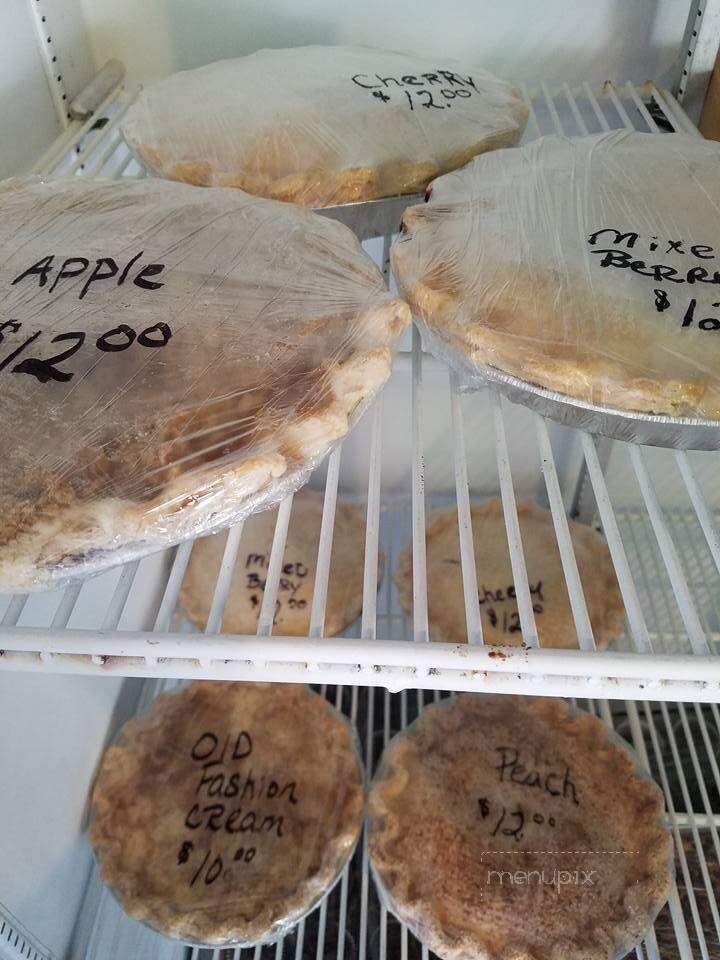 CHERRY
$12.00
Apple
$12.00
Mixe
BERR
$10
Mixed
Berry
00
Cherry
$12
OlD
Fashion
CReam
$10.00
Peach
$12.00
menupix